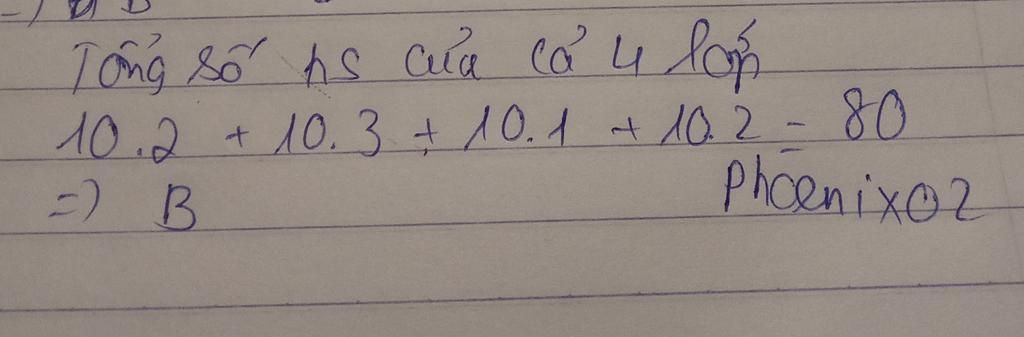 Tổng số hs của cả 4 lớp
10.2 + 10.3 + 10.1 + 10.2 = 80
=) B
Phoenix02